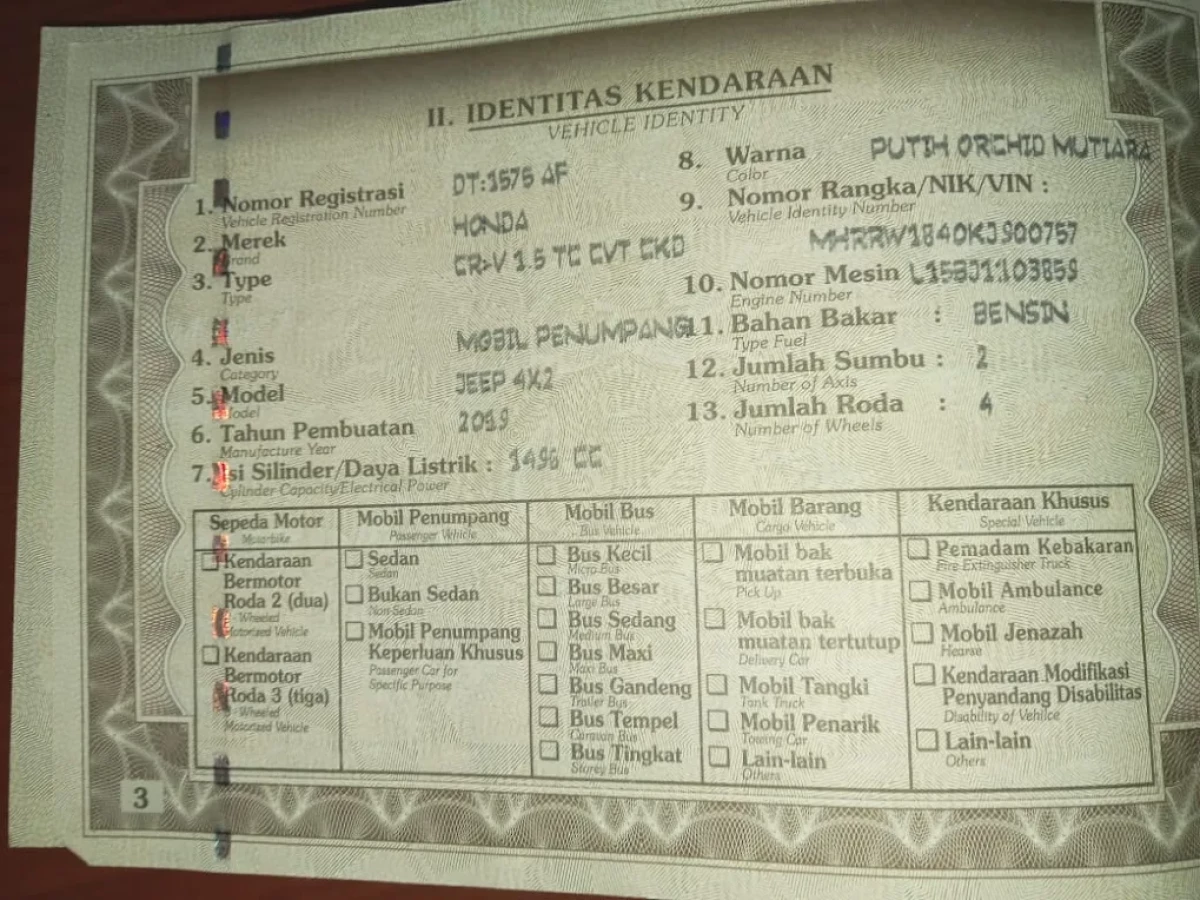 II. IDENTITAS KENDARAAN
VEHICLE IDENTITY
1. Nomor Registrasi DT:1575 AF
Vehicle Registration Number
2. Merek HONDA
Brand
3. Type CR-V 1.5 TC CVT CKD
Type
4. Jenis MOBIL PENUMPANG
Category
5. Model JEEP 4X2
Model
6. Tahun Pembuatan 2019
Manufacture Year
7. Isi Silinder/Daya Listrik : 1496 CC
Cylinder Capacity/Electrical Power
8. Warna PUTIH ORCHID MUTIARA
Color
9. Nomor Rangka/NIK/VIN :
Vehicle Identity Number
MHRRW1840KJ900757
10. Nomor Mesin L15BJ1103859
Engine Number
11. Bahan Bakar : BENSIN
Type Fuel
12. Jumlah Sumbu : 2
Number of Axis
13. Jumlah Roda : 4
Number of Wheels
Sepeda Motor
Motorbike
Kendaraan
Bermotor
Roda 2 (dua)
Wheeled
Motorized Vehicle
Kendaraan
Bermotor
Roda 3 (tiga)
Wheeled
Motorized Vehicle
Mobil Penumpang
Passenger Vehicle
Sedan
Sedan
Bukan Sedan
Non Sedan
Mobil Penumpang
Keperluan Khusus
Passenger Car for
Specific Purpose
Mobil Bus
Bus Vehicle
Bus Kecil
Micro Bus
Bus Besar
Large Bus
Bus Sedang
Medium Bus
Bus Maxi
Maxi Bus
Bus Gandeng
Trailer Bus
Bus Tempel
Caravan Bus
Bus Tingkat
Storey Bus
Mobil Barang
Cargo Vehicle
Mobil bak
muatan terbuka
Pick Up
Mobil bak
muatan tertutup
Delivery Car
Mobil Tangki
Tank Truck
Mobil Penarik
Towing Car
Lain-lain
Others
Kendaraan Khusus
Special Vehicle
Pemadam Kebakaran
Fire Extinguisher Truck
Mobil Ambulance
Ambulance
Mobil Jenazah
Hearse
Kendaraan Modifikasi
Penyandang Disabilitas
Disability of Vehilce
Lain-lain
Others
3